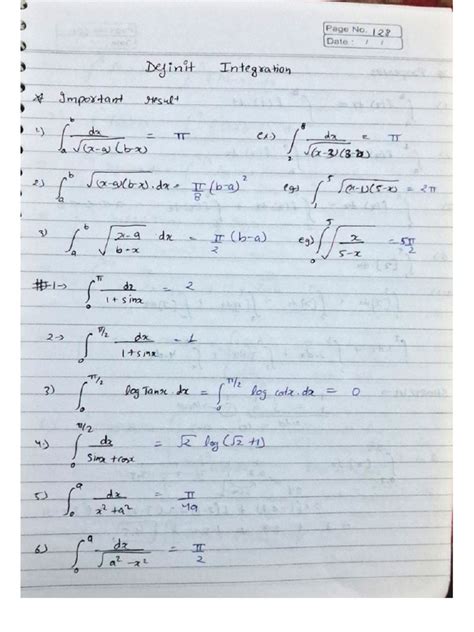 Page No. 128
Date : / /
Definit Integration
* Important result
1) ∫_a^b dx/√(x-a)(b-x) = π ex) ∫_2^8 dx/√(x-2)(8-x) = π
2) ∫_a^b √(x-a)(b-x).dx = π/8 (b-a)^2 eg) ∫_1^5 √(x-1)(5-x) = 2π
3) ∫_a^b √(x-a/b-x) dx = π/2 (b-a) eg) ∫_0^5 √(x/5-x) = 5π/2
#-1→ ∫_0^π dx/1+sinx = 2
2→ ∫_0^π/2 dx/1+sinx = 1
3) ∫_0^π/2 log Tanx.dx = ∫_0^π/2 log cotx.dx = 0
4) ∫_0^π/2 dx/sinx+cosx = √2 log(√2+1)
5) ∫_0^a dx/x^2+a^2 = π/4a
6) ∫_0^a dx/√a^2-x^2 = π/2